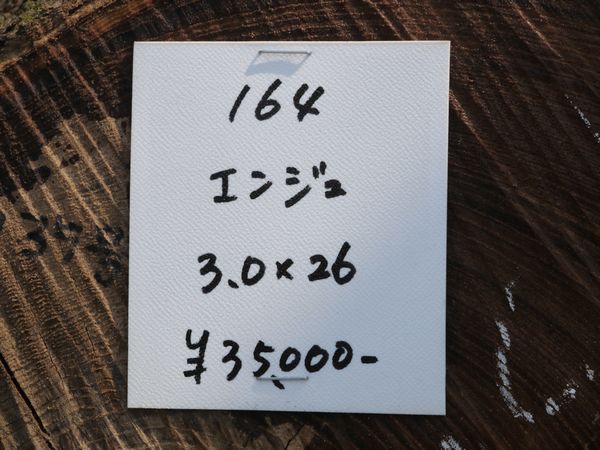 164
エンジュ
3.0×26
¥35,000-